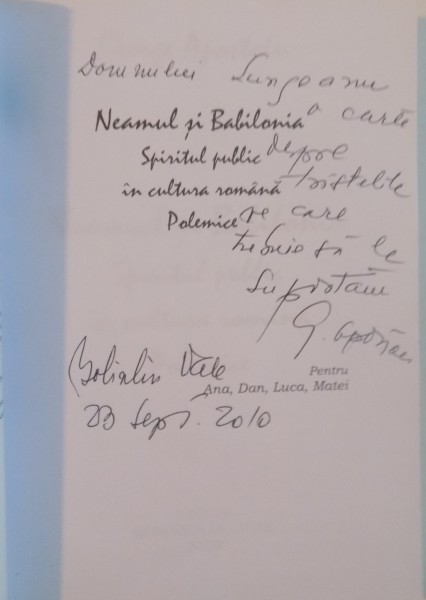 Domnului Lungeanu
Neamul și Babilonia o carte
Spiritul public despre
în cultura română tristețile
Polemice pe care
trebuie să le
suportăm
G.
Bolintin Vale
Pentru
Ana, Dan, Luca, Matei
23 Sept. 2010